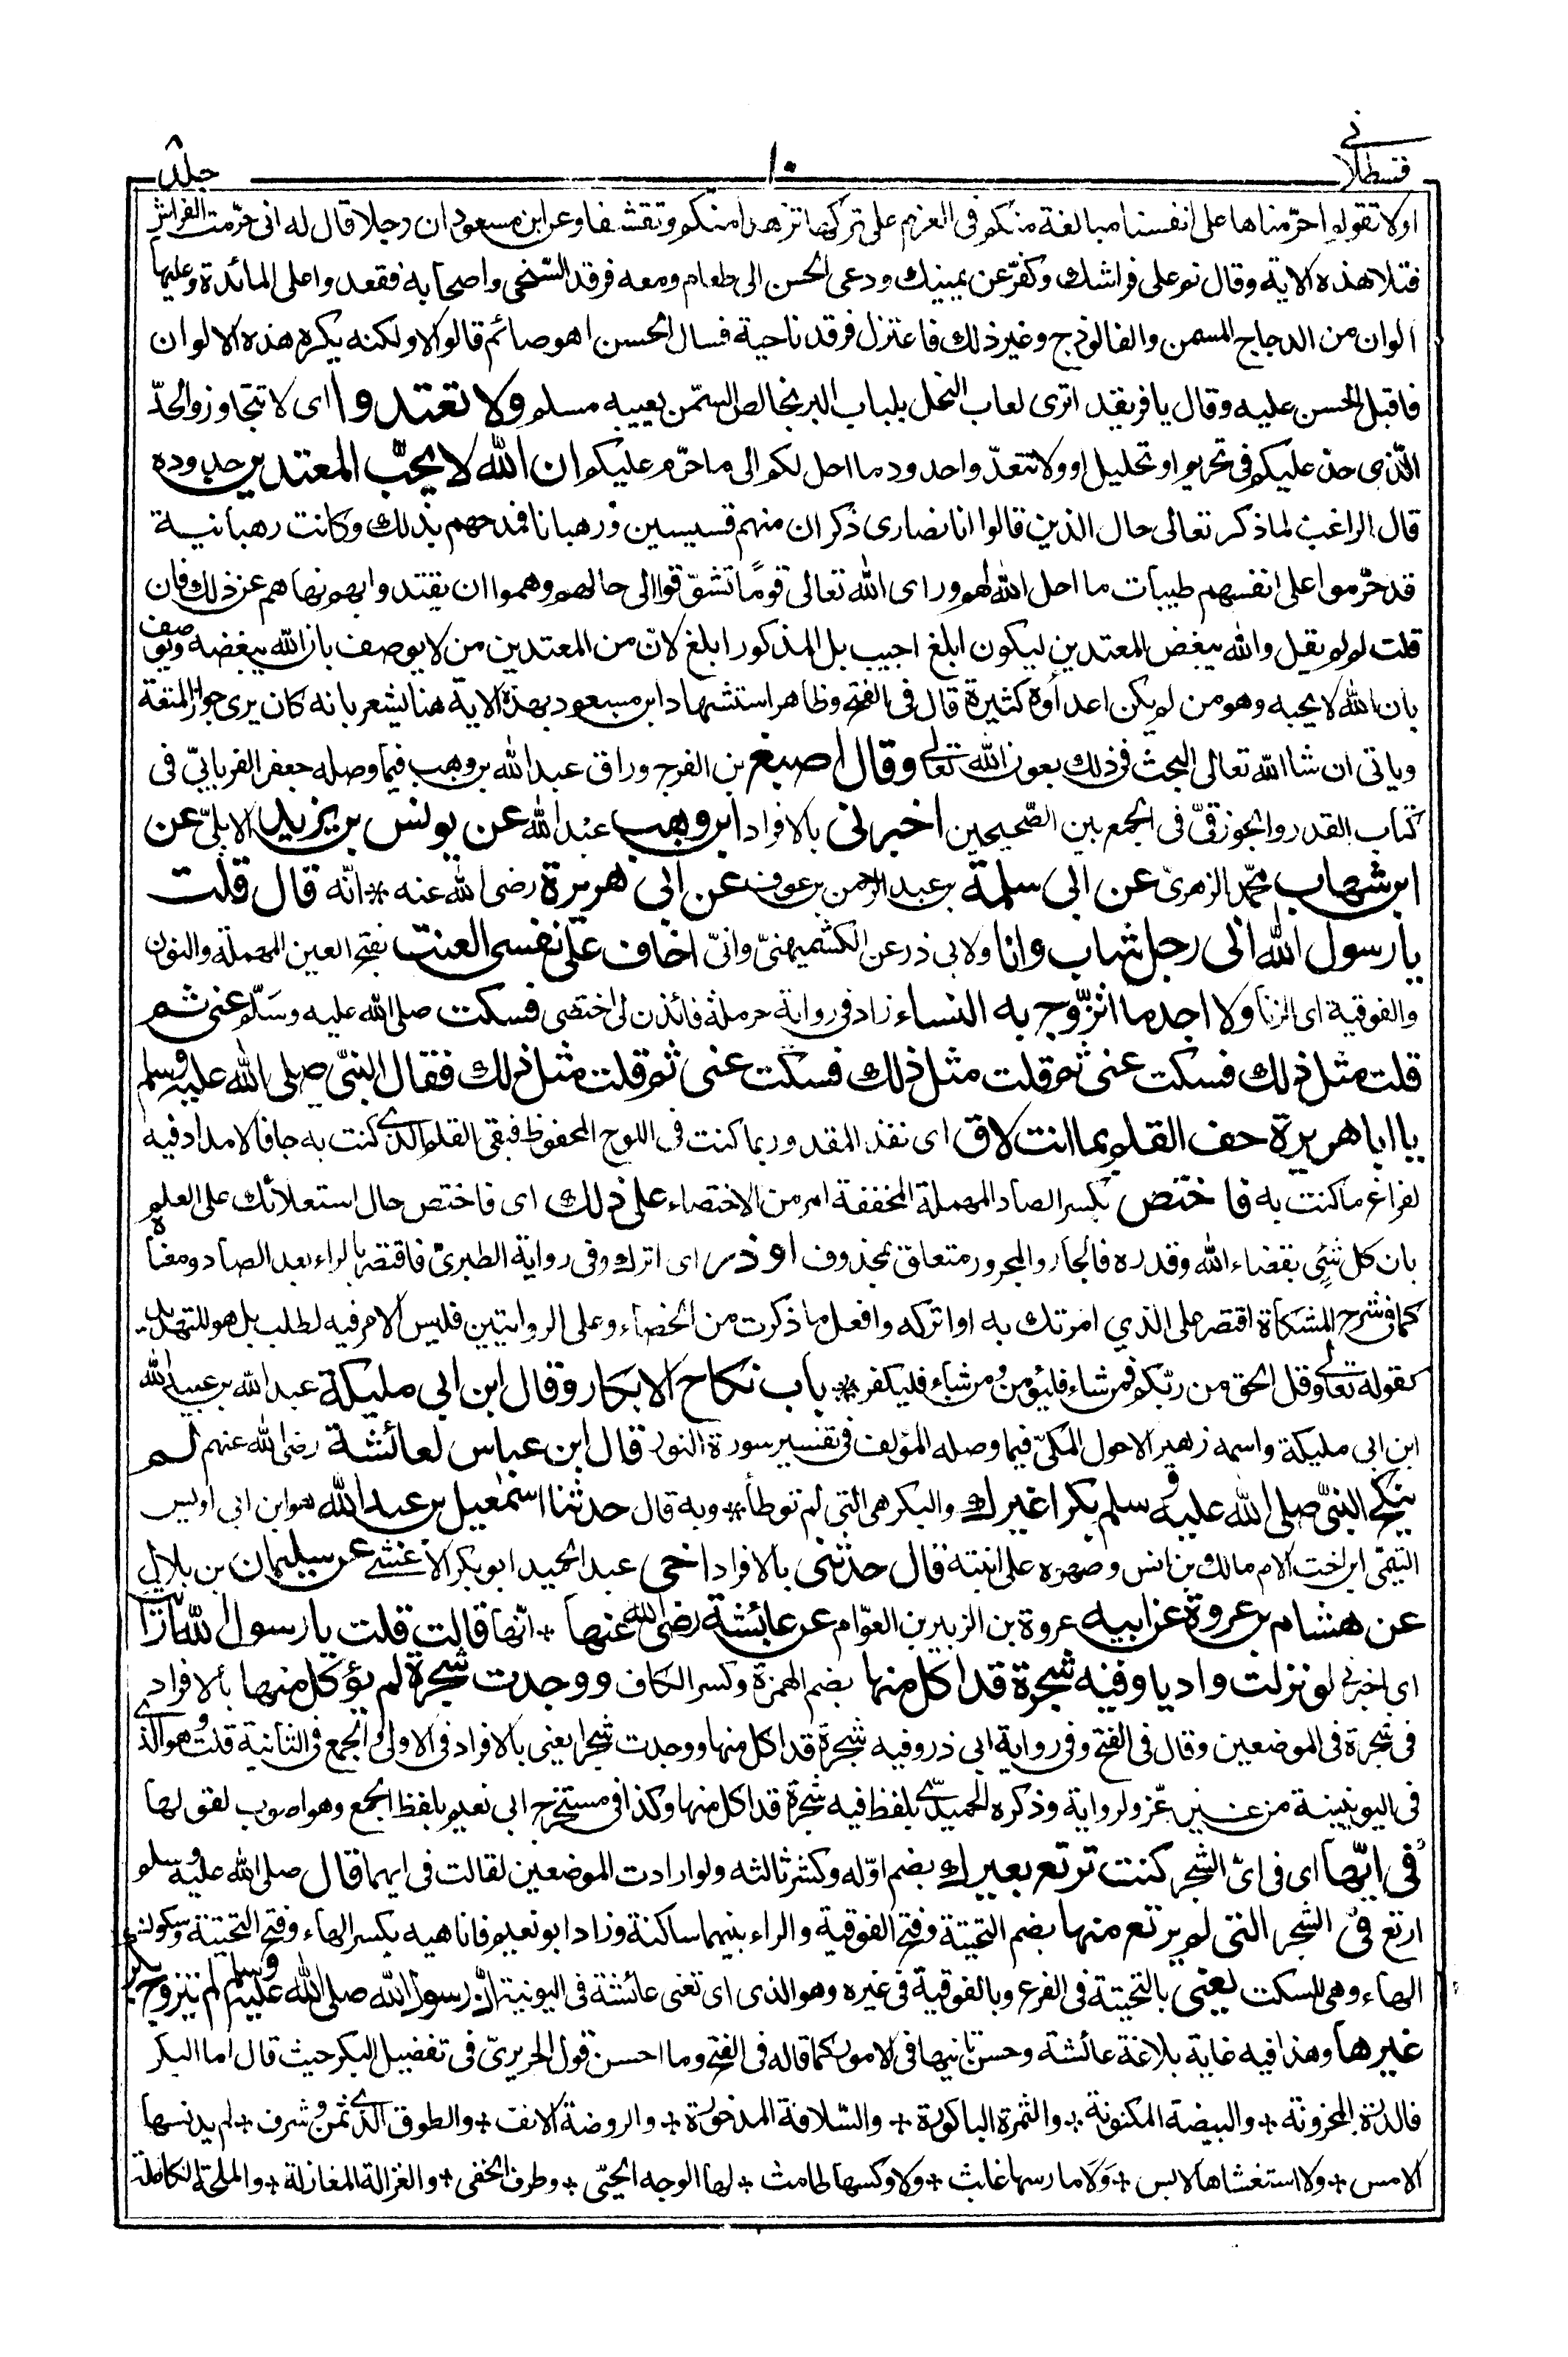 قسطلانى
١٠
جلد ٨
اولا تقولوا حرّمناها على انفسنا مبالغة منكم فى العزم على تركها تزهدا منكم وتقشفا وعن ابن مسعود ان رجلا قال له انى حرّمت الفراش
فتلا هذه الاية وقال نم على فراشك وكفّر عن يمينك ودعى الحسن الى طعام ومعه فرقد السّنجى واصحابه فقعدوا على المائدة وعليها
الوان من الدجاج المسمن والفالوذج وغير ذلك فاعتزل فرقد ناحية فسال الحسن اهو صائم قالوا لا ولكنه يكره هذه الالوان
فاقبل الحسن عليه وقال يا فريقد اترى لعاب النحل بلباب البر بخالص السّمن يعيبه مسلم ولا تعتدوا اى لا تتجاوزوا الحدّ
الّذى حدّ عليكم فى تحريم او تحليل او ولا تتعدّوا حدود ما احل لكم الى ما حرّم عليكم ان الله لا يحبّ المعتدين حدوده
قال الراغب لما ذكر تعالى حال الذين قالوا انا نصارى ذكر ان منهم قسيسين ورهبانا فمدحهم بذلك وكانت رهبانية
قد حرّموا على انفسهم طيبات ما احل الله لهم وراى الله تعالى قومًا تشوّقوا الى حالهم وهموا ان يقتدوا بهم نهاهم عن ذلك فان
قلت لم لم يقل والله يبغض المعتدين ليكون ابلغ اجيب بل المذكور ابلغ لانّ من المعتدين من لا يوصف بان الله يبغضه ويوصف
بان الله لا يحبه وهو من لم يكن اعتداؤه كثيرة قال فى الفتح وظاهر استشهاد ابن مسعود بهذه الاية هنا يشعر بانه كان يرى جواز المتعة
وياتى ان شا الله تعالى البحث فى ذلك بعون الله تعالى وقال اصبغ بن الفرج وراق عبد الله بن وهب فيما وصله جعفر الفريابىّ فى
كتاب القدر والجوزقىّ فى الجمع بين الصّحيحين اخبرنى بالافراد ابن وهب عبد الله عن يونس بن يزيد الايلىّ عن
ابن شهاب محمّد الزهرىّ عن ابى سلمة بن عبد الرحمن بن عوف عن ابى هريرة رضى الله عنه * انّه قال قلت
يا رسول الله انّى رجل شاب وانا ولابى ذر عن الكشميهنىّ وانّى اخاف على نفسى العنت بفتح العين المهملة والنون
والفوقية اى الزنا ولا اجد ما اتزوّج به النساء زاد فى رواية حرملة فائذن لى اختصى فسكت صلى الله عليه وسَلّم عنى ثم
قلت مثل ذلك فسكت عنى ثم قلت مثل ذلك فسكت عنى ثم قلت مثل ذلك فقال النبىّ صلى الله عليه وسلم
يا ابا هريرة جف القلم بما انت لاق اى نفذ المقدور بما كنت فى اللوح المحفوظ فبقى القلم الذى كنت به جافا لا مداد فيه
لفراغ ما كنت به فاختص بكسر الصاد المهملة المخففة امر من الاختصاء على ذلك اى فاختص حال استعلائك على العلم
بان كل شئ بقضاء الله وقدره فالجار والمجرور متعلق بمحذوف او ذر اى اترك وفى رواية الطبرىّ فاقتصر بالراء بعد الصاد ومعناه
كما فى شرح المشكاة اقتصر على الذى امرتك به او اتركه وافعل ما ذكرت من الخصاء وعلى الروايتين فليس الامر فيه لطلب بل هو للتهديد
كقوله تعالى وقل الحق من ربّكم فمن شاء فليؤمن ومن شاء فليكفر * باب نكاح الابكار وقال ابن ابى مليكة عبد الله بن عبيد الله
ابن ابى مليكة واسمه زهير الاحول المكىّ فيما وصله المؤلف فى تفسير سورة النور قال ابن عباس لعائشة رضى الله عنهم لم
ينكح النبىّ صلى الله عليه وسلم بكرا غيرك والبكر هى التى لم توطأ * وبه قال حدثنا اسمٰعيل بن عبد الله هو ابن ابى اويس
التيمّى ابن اخت الامام مالك بن انس وصهره على ابنته قال حدثنى بالافراد اخى عبد الحميد ابو بكر الاعشى عن سليمان بن بلال
عن هشام بن عروة عن ابيه عروة بن الزبير بن العوّام عن عائشة رضى الله عنها * انّها قالت قلت يا رسول الله ارايت
اى اخبرنى لو نزلت واديا وفيه شجرة قد اكل منها بضم الهمزة وكسر الكاف ووجدت شجرة لم يؤكل منها بالافراد
فى شجرة فى الموضعين وقال فى الفتح وفى رواية ابى ذر وفيه شجرة قد اكل منها ووجدت شجرا يعنى بالافراد فى الاولى والجمع فى الثانية قلت وهو الذى
فى اليونينية من غير عزو لرواية وذكره الحميدىّ بلفظ فيه شجرة قد اكل منها وكذا فى مستخرج ابى نعيم بلفظ الجمع وهو اصوب لقولها
فى ايّها اى فى اىّ الشجر كنت ترتع بعيرك بضم اوّله وكسر ثالثه ولو ارادت الموضعين لقالت فى ايهما قال صلى الله عليه وسلم
ارتع فى الشجر التى لم يرتع منها بضم التحتية وفتح الفوقية والراء بينهما ساكنة وزاد ابو نعيم فانا هيه بكسر الهاء وفتح التحتية وسكون
الهاء وهى للسكت يعنى بالتحتية فى الفرع وبالفوقية فى غيره وهو الذى اى تعنى عائشة فى اليونينية انّ رسول الله صلى الله عليه وسلم لم يتزوج بكرا
غيرها وهذا فيه غاية بلاغة عائشة وحسن تانيها فى الامور كما قاله فى الفتح وما احسن قول الحريرىّ فى تفضيل البكر حيث قال اما البكر
فالدرّة المخزونة * والبيضة المكنونة * والثمرة الباكورة * والسّلافة المدخورة * والروضة الانف * والطوق الذى ثمن وشرف * لم يدنسها
لامس * ولا استغشاها لابس * وَلا مارسها عابث * ولا وكسها طامث * لها الوجه الحيّى * وطرف الخفى * والغزالة المغازلة * والملحة الكاملة